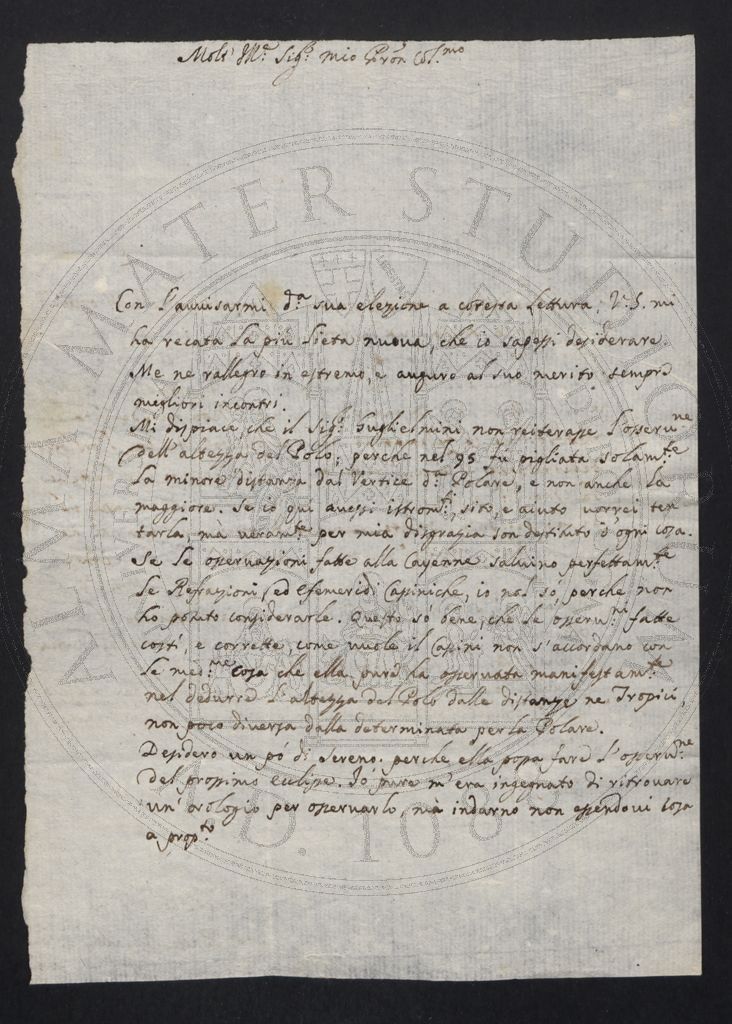 Molt' Ill.e Sig.r mio P͞ron Col.mo
Con l'auuisarmi d.a sua elezione a cotesta Lettura, V.S. mi
ha recata la più lieta nuoua, che io sapessi desiderare.
Me ne rallegro in estremo, e auguro al suo merito sempre
megliori incontri.
Mi dispiace, che il Sig.r Guglielmini non reiterasse l'osseru.ne
dell'altezza del Polo; perche nel 95 fù pigliata solam.te
la minore distanza dal Vertice d.a Polare, e non anche la
maggiore. Se io qui auessi istrom.ti, sito, e aiuto vorrei ten
tarla, mà veram.te per mia disgrazia son destituto d'ogni cosa.
Se le osseruazioni fatte alla Cayenne saluino perfettam.te
le Refrazioni, ed Efemeridi Cassiniche, io nol sò, perche non
ho potuto considerarle. Questo sò bene, che le osseru.ni fatte
costì, e corrette, come vuole il Cassini non s'accordano con
le med.me cosa che ella pure ha osseruata manifestam.te
nel dedurre l'altezza del Polo dalle distanze ne Tropici,
non poco diuersa dalla determinata per la Polare.
Desidero un pò di sereno, perche ella possa fare l'osseru.ne
del prossimo eclisse. Io pure m'era ingegnato di ritrouare
un' orologio per osseruarlo, mà indarno non essendoui cosa
a prop.to
ALMA MATER STUDIORUM
A.D. 1088